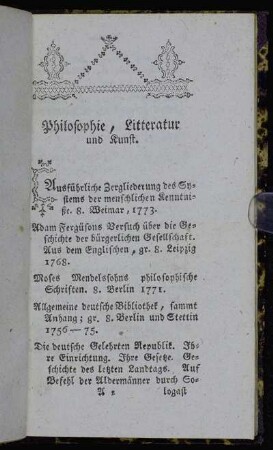 Philosophie, Litteratur
und Kunst.
Ausführliche Zergliederung des Sy-
stems der menschlichen Kenntni-
ße. 8. Weimar, 1773.
Adam Fergüsons Versuch über die Ge-
schichte der bürgerlichen Gesellschaft.
Aus dem Englischen, gr. 8. Leipzig
1768.
Moses Mendelsohns philosophische
Schriften. 8. Berlin 1771.
Allgemeine deutsche Bibliothek, sammt
Anhang; gr. 8. Berlin und Stettin
1756—75.
Die deutsche Gelehrten Republik. Ih-
re Einrichtung. Ihre Gesetze. Ge-
schichte des letzten Landtags. Auf
Befehl der Aldermänner durch So-
logast